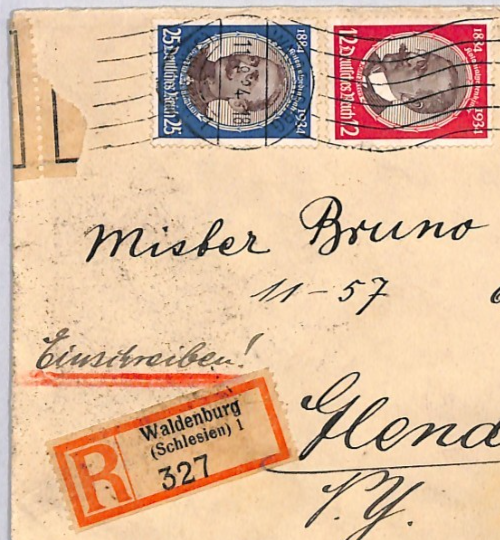 25 Deutsches Reich 25
1884
1934
12 Deutsches Reich 12
1884
1934
Misber Bruno
11-57
Einschreiben!
R
Waldenburg
(Schlesien) 1
327
Glend
N.Y.